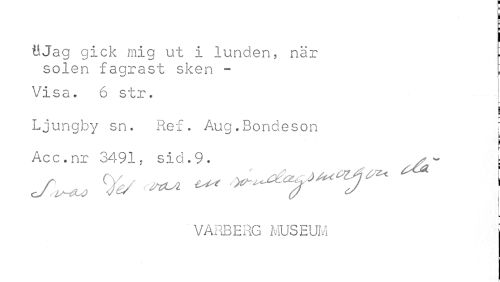 "Jag gick mig ut i lunden, när
solen fagrast sken -
Visa. 6 str.
Ljungby sn. Ref. Aug.Bondeson
Acc.nr 3491, sid.9.
Svas Det var en söndagsmorgon då
VARBERG MUSEUM